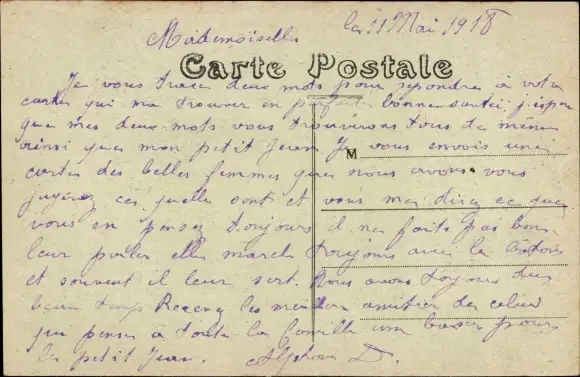 le 11 Mai 1918
Mademoiselle
Carte Postale
Je vous trace deux mots pour repondre à votre
carte qui ma trouver en parfaite bonne santé j'espere
que mes deux mots vous trouverons tous de même
ainsi que mon petit Jean Je vous envois une
M
carte des belles femmes que nous avons vous
jugerez ce quelle sont et vous me direz ce que
vous en pensez toujours il ne faits pas bon
leur parler elle marche toujours avec la
et souvent il leur sert. Nous avons toujours du
beau temps Recevez les meilleur amitiés de celui
qui pense a toute la famille un baser pour
le petit Jean. Alphonse D.